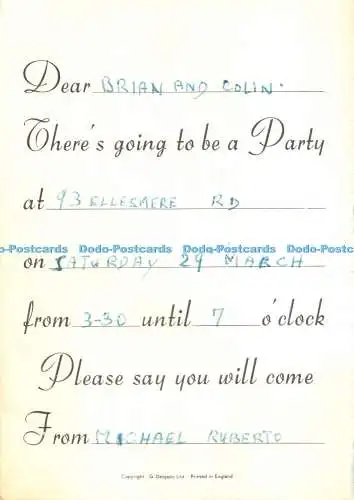 Dear BRIAN AND COLIN.
There's going to be a Party
at 93 ELLESMERE RD
Dodo-Postcards Dodo-Postcards Dodo-Postcards
on SATURDAY 29 MARCH
from 3-30 until 7 o'clock
Please say you will come
From MICHAEL RUBERTO
Copyright G. Delgado Ltd Printed in England